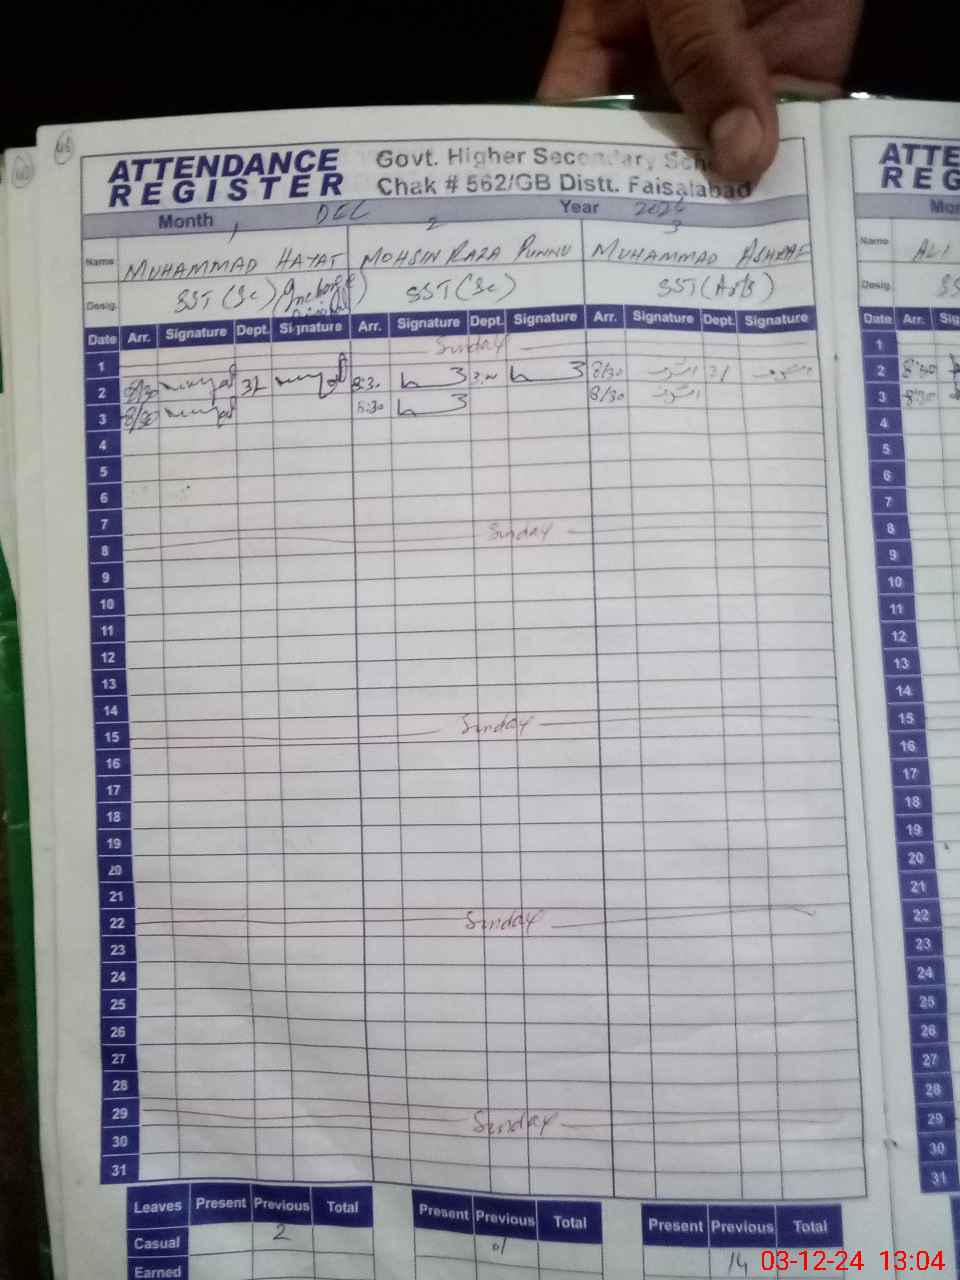 ATTENDANCE REGISTER
Govt. Higher Secondary Sch
Chak # 562/GB Distt. Faisalabad
Month DEC Year 2024
1 2 3
Name MUHAMMAD HAYAT MOHSIN RAZA PUNNU MUHAMMAD ASHRAF
Desig. SST (Sc) SST (Sc) SST (Arts)
Date Arr. Signature Dept. Signature Arr. Signature Dept. Signature Arr. Signature Dept. Signature
1 Sunday
2 8/30 3/ 8:30 8/30 اشرف 3/ اشرف
3 8/30 8:30 8/30 اشرف
4
5
6
7
8 Sunday
9
10
11
12
13
14
15 Sunday
16
17
18
19
20
21
22 Sunday
23
24
25
26
27
28
29 Sunday
30
31
Leaves Present Previous Total Present Previous Total Present Previous Total
Casual 2 01 14
Earned
ATTE
REG
Mon
Name ALI
Desig. SS
Date Arr. Sig
1
2 8:30
3 8:30
4
5
6
7
8
9
10
11
12
13
14
15
16
17
18
19
20
21
22
23
24
25
26
27
28
29
30
31
03-12-24 13:04